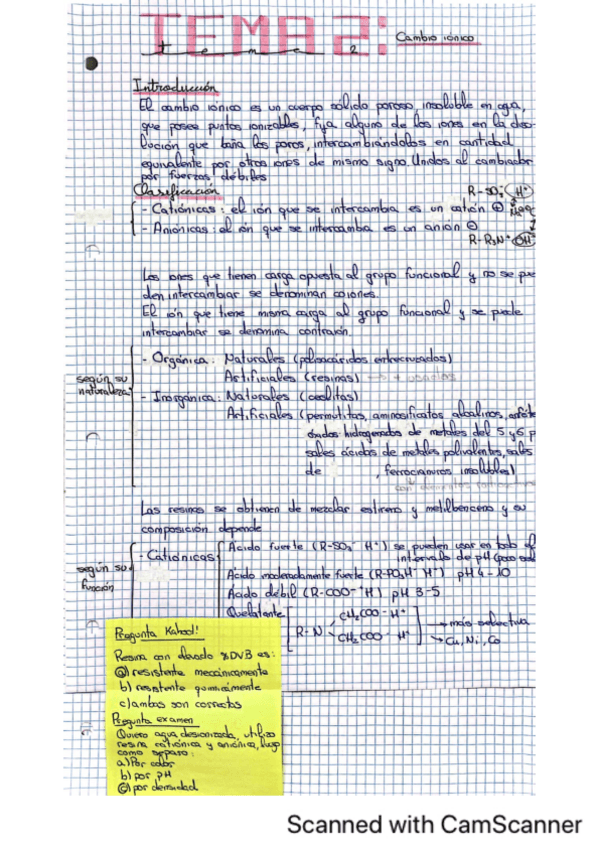 TEMA 2:
tema 2
Cambio iónico
Introducción
El cambio iónico es un cuerpo sólido poroso, insoluble en agua,
que posee puntos ionizables, fija alguno de los iones en la diso-
lución que baña los poros, intercambiándolos en cantidad
equivalente por otros iones de mismo signo. Unidos al cambiador
por fuerzas débiles
Clasificación
R-SO3- H+
- Catiónicas: el ión que se intercambia es un catión ⊕
- Aniónicas: el ión que se intercambia es un anión ⊖
R-R3N+ OH-
Los iones que tienen carga opuesta al grupo funcional y no se pue
den intercambiar se denominan coiones.
El ión que tiene misma carga al grupo funcional y se puede
intercambiar se denomina contraión.
según su
naturaleza
- Orgánica: Naturales (polisacáridos entrecruzados)
Artificiales (resinas) → + usadas
- Inorgánica: Naturales (ceolitas)
Artificiales (permutitas, aminosilicatos alcalinos,
óxidos hidrogenados de metales del 5 y 6 p
sales ácidas de metales polivalentes, sales
de , ferrocianuros insolubles)
Las resinas se obtienen de mezclar estireno y metilbenceno y su
composición depende
según su
función
- Catiónicas
Ácido fuerte (R-SO3- H+) se pueden usar en todo el
intervalo de pH
Ácido moderadamente fuerte (R-PO3H- H+) pH 4-10
Ácido débil (R-COO- +H) pH 3-5
Quelatante
R-N
CH2COO- H+
CH2COO- H+
→ más selectiva
→ Cu, Ni, Co
Pregunta Kahoot!
Resina con elevado %DVB es:
a) resistente mecánicamente
b) resistente químicamente
c) ambas son correctas
Pregunta examen
Quiero agua desionizada, utilizo
resina catiónica y aniónica, luego
como separo:
a) Por color
b) por pH
c) por densidad
Scanned with CamScanner